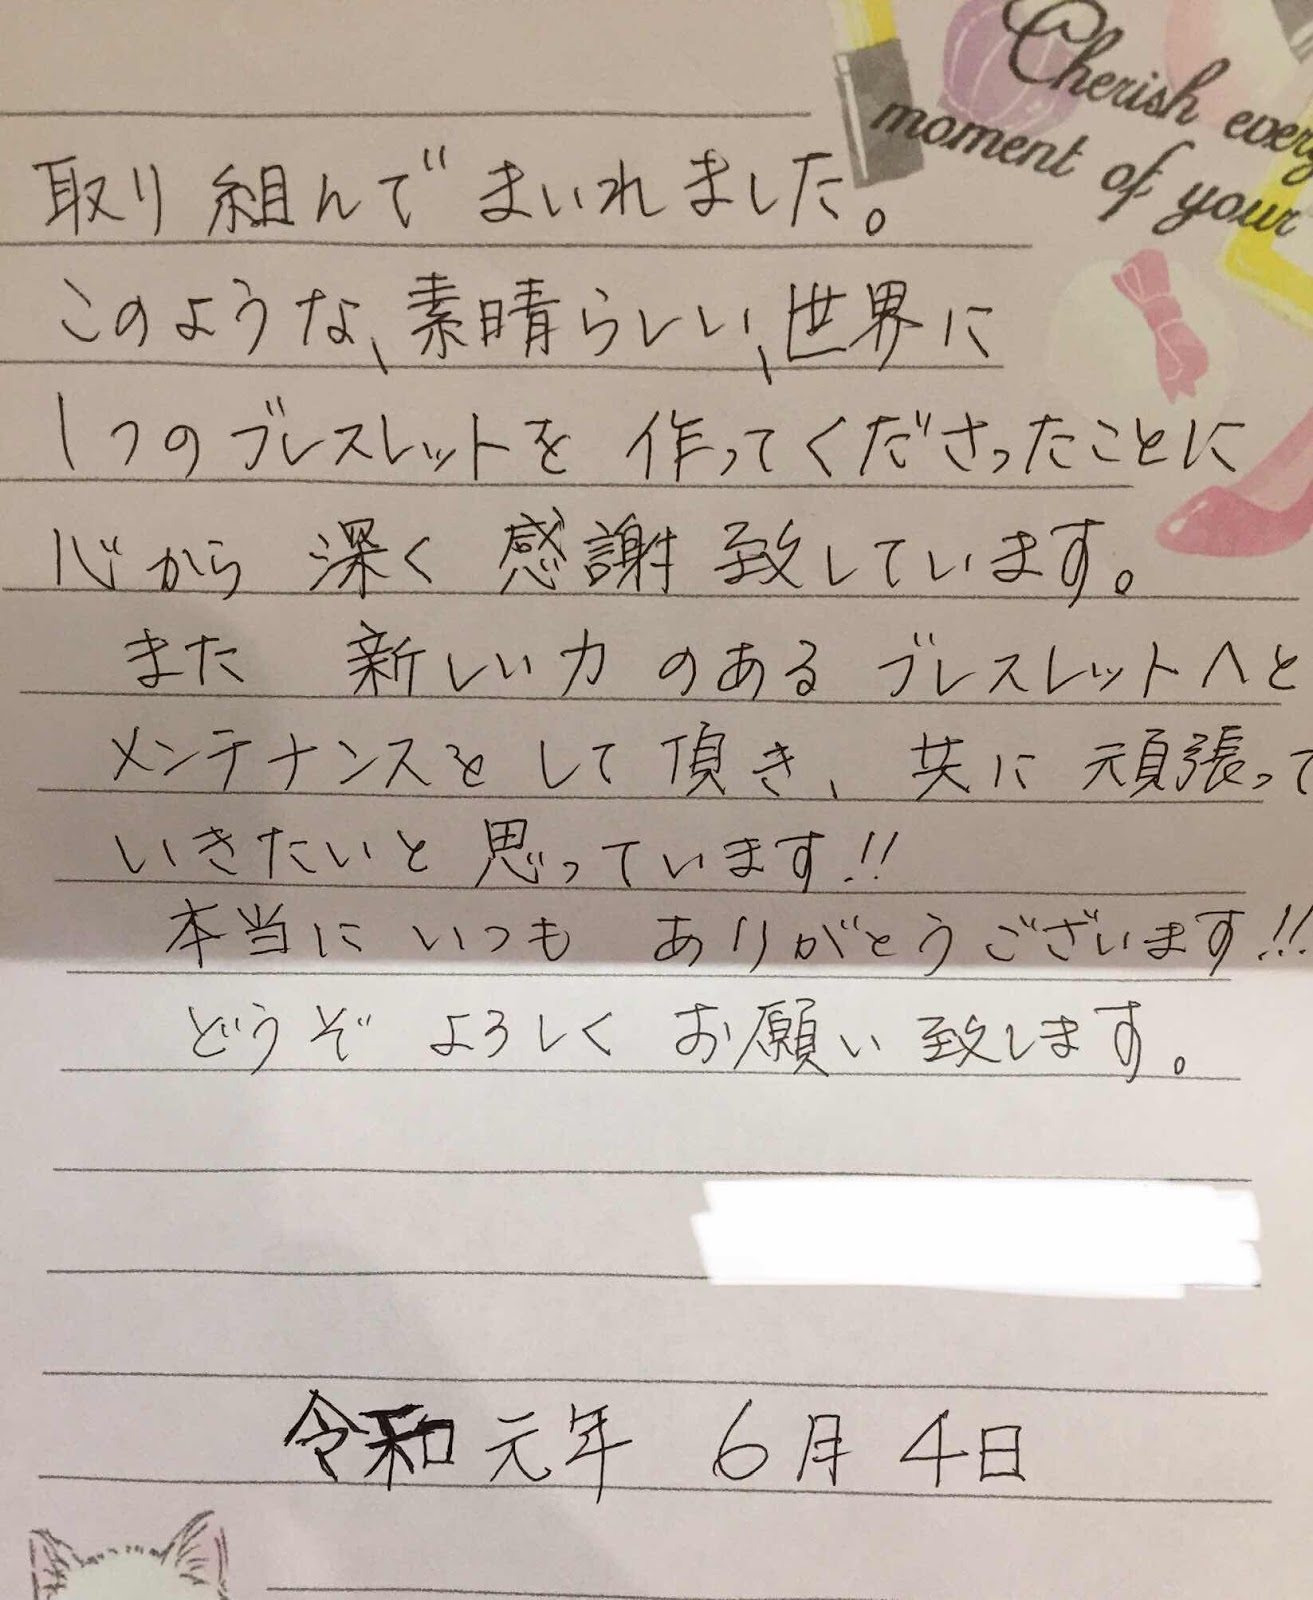 Cherish every
moment of your
取り組んでまいれました。
このような、素晴らしい、世界に
1つのブレスレットを作ってくださったことに
心から深く感謝致しています。
また 新しい力のあるブレスレットへと
メンテナンスをして頂き、共に頑張って
いきたいと思っています!!
本当にいつもありがとうございます!!
どうぞよろしくお願い致します。
令和元年 6月4日